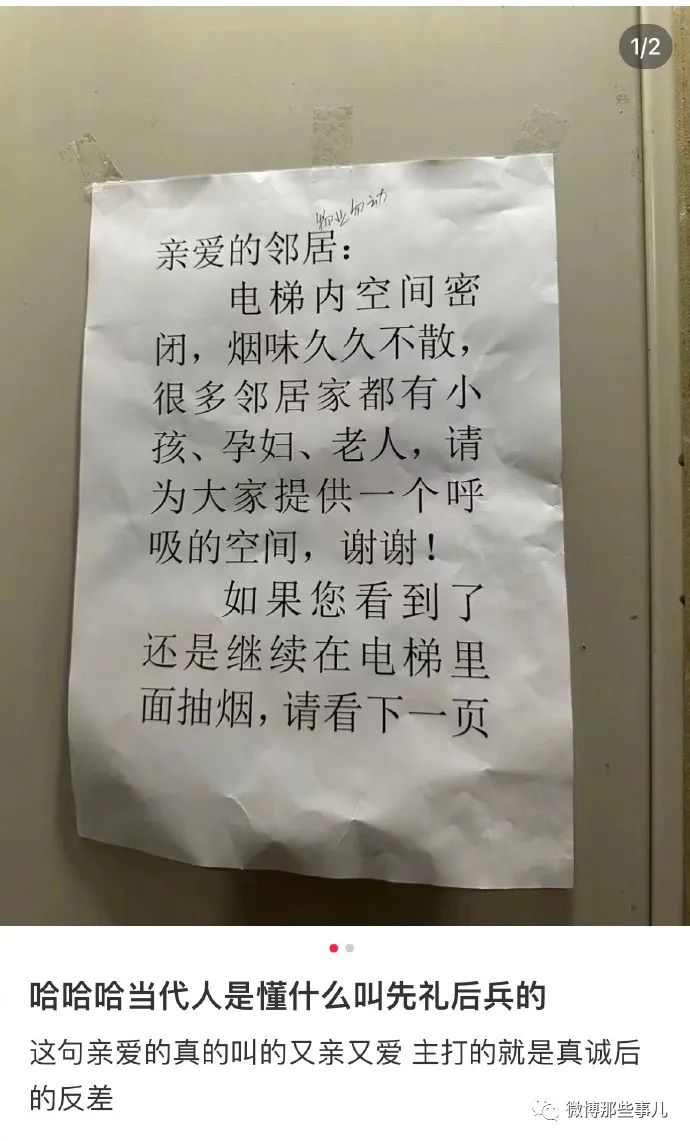 1/2
物业勿动
亲爱的邻居：
电梯内空间密
闭，烟味久久不散，
很多邻居家都有小
孩、孕妇、老人，请
为大家提供一个呼
吸的空间，谢谢！
如果您看到了
还是继续在电梯里
面抽烟，请看下一页
哈哈哈当代人是懂什么叫先礼后兵的
这句亲爱的真的叫的又亲又爱 主打的就是真诚后
的反差
微博那些事儿